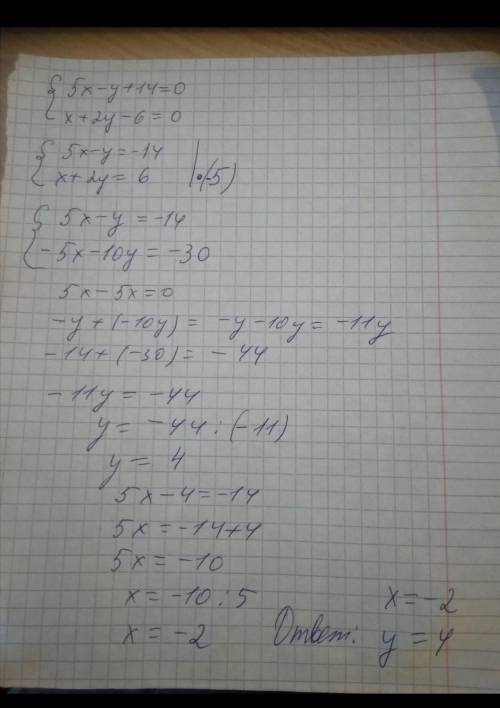 { 5x-y+14=0
x+2y-6=0
{ 5x-y=-14
x+2y= 6 | •(-5)
{ 5x-y=-14
-5x-10y=-30
5x-5x=0
-y+(-10y)= -y-10y= -11y
-14+(-30)= -44
-11y= -44
y= -44:(-11)
y= 4
5x-4=-14
5x=-14+4
5x=-10
x=-10:5
x=-2
Ответ: x=-2
y=4